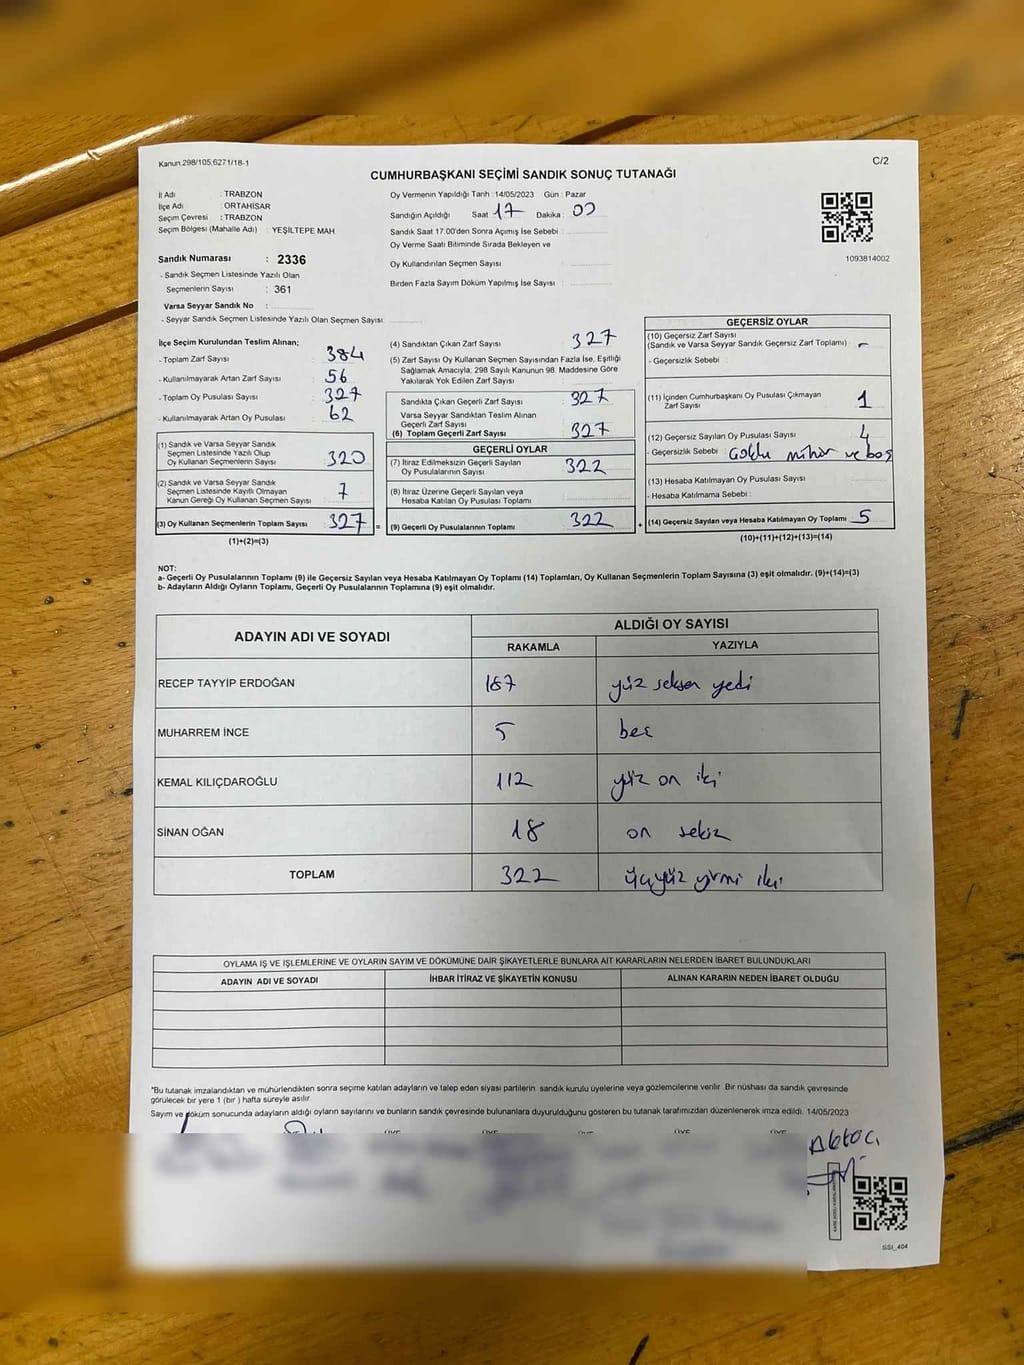 Kanun,298/105,6271/18-1
C/2
CUMHURBAŞKANI SEÇİMİ SANDIK SONUÇ TUTANAĞI
İl Adı : TRABZON
İlçe Adı : ORTAHİSAR
Seçim Çevresi : TRABZON
Seçim Bölgesi (Mahalle Adı) : YEŞİLTEPE MAH.
Oy Vermenin Yapıldığı Tarih :14/05/2023 Gün : Pazar
Sandığın Açıldığı Saat 17 Dakika : 00
Sandık Saat 17:00'den Sonra Açımış İse Sebebi :
Oy Verme Saati Bitiminde Sırada Bekleyen ve
Oy Kullandırılan Seçmen Sayısı
Birden Fazla Sayım Döküm Yapılmış İse Sayısı :
1093814002
Sandık Numarası : 2336
- Sandık Seçmen Listesinde Yazılı Olan
Seçmenlerin Sayısı : 361
Varsa Seyyar Sandık No :
- Seyyar Sandık Seçmen Listesinde Yazılı Olan Seçmen Sayısı
İlçe Seçim Kurulundan Teslim Alınan;
- Toplam Zarf Sayısı : 384
- Kullanılmayarak Artan Zarf Sayısı : 56
- Toplam Oy Pusulası Sayısı : 327
- Kullanılmayarak Artan Oy Pusulası : 62
(1) Sandık ve Varsa Seyyar Sandık
Seçmen Listesinde Yazılı Olup
Oy Kullanan Seçmenlerin Sayısı : 320
(2) Sandık ve Varsa Seyyar Sandık
Seçmen Listesinde Kayıtlı Olmayan
Kanun Gereği Oy Kullanan Seçmen Sayısı : 7
(3) Oy Kullanan Seçmenlerin Toplam Sayısı : 327 =
(1)+(2)=(3)
(4) Sandıktan Çıkan Zarf Sayısı : 327
(5) Zarf Sayısı Oy Kullanan Seçmen Sayısından Fazla İse, Eşitliği
Sağlamak Amacıyla, 298 Sayılı Kanunun 98. Maddesine Göre
Yakılarak Yok Edilen Zarf Sayısı :
Sandıkta Çıkan Geçerli Zarf Sayısı : 327
Varsa Seyyar Sandıktan Teslim Alınan
Geçerli Zarf Sayısı :
(6) Toplam Geçerli Zarf Sayısı : 327
GEÇERLİ OYLAR
(7) İtiraz Edilmeksizin Geçerli Sayılan
Oy Pusulalarının Sayısı : 322
(8) İtiraz Üzerine Geçerli Sayılan veya
Hesaba Katılan Oy Pusulası Toplamı
(9) Geçerli Oy Pusulalarının Toplamı : 322 +
GEÇERSİZ OYLAR
(10) Geçersiz Zarf Sayısı
(Sandık ve Varsa Seyyar Sandık Geçersiz Zarf Toplamı) : -
- Geçersizlik Sebebi :
(11) İçinden Cumhurbaşkanı Oy Pusulası Çıkmayan
Zarf Sayısı 1
(12) Geçersiz Sayılan Oy Pusulası Sayısı 4
- Geçersizlik Sebebi : mühür ve boş
(13) Hesaba Katılmayan Oy Pusulası Sayısı
- Hesaba Katılmama Sebebi :
(14) Geçersiz Sayılan veya Hesaba Katılmayan Oy Toplamı 5
(10)+(11)+(12)+(13)=(14)
NOT:
a- Geçerli Oy Pusulalarının Toplamı (9) ile Geçersiz Sayılan veya Hesaba Katılmayan Oy Toplamı (14) Toplamları, Oy Kullanan Seçmenlerin Toplam Sayısına (3) eşit olmalıdır. (9)+(14)=(3)
b- Adayların Aldığı Oyların Toplamı, Geçerli Oy Pusulalarının Toplamına (9) eşit olmalıdır.
ADAYIN ADI VE SOYADI ALDIĞI OY SAYISI
RAKAMLA YAZIYLA
RECEP TAYYİP ERDOĞAN 187 yüz seksen yedi
MUHARREM İNCE 5 beş
KEMAL KILIÇDAROĞLU 112 yüz on iki
SİNAN OĞAN 18 on sekiz
TOPLAM 322 üçyüz yirmi iki
OYLAMA İŞ VE İŞLEMLERİNE VE OYLARIN SAYIM VE DÖKÜMÜNE DAİR ŞİKAYETLERLE BUNLARA AİT KARARLARIN NELERDEN İBARET BULUNDUKLARI
ADAYIN ADI VE SOYADI İHBAR İTİRAZ VE ŞİKAYETİN KONUSU ALINAN KARARIN NEDEN İBARET OLDUĞU
*Bu tutanak imzalandıktan ve mühürlendikten sonra seçime katılan adayların ve talep eden siyasi partilerin sandık kurulu üyelerine veya gözlemcilerine verilir. Bir nüshası da sandık çevresinde
görülecek bir yere 1 (bir ) hafta süreyle asılır.
Sayım ve döküm sonucunda adayların aldığı oyların sayılarını ve bunların sandık çevresinde bulunanlara duyurulduğunu gösteren bu tutanak tarafımızdan düzenlenerek imza edildi. 14/05/2023
ÜYE ÜYE ÜYE ÜYE ÜYE
SSI_404